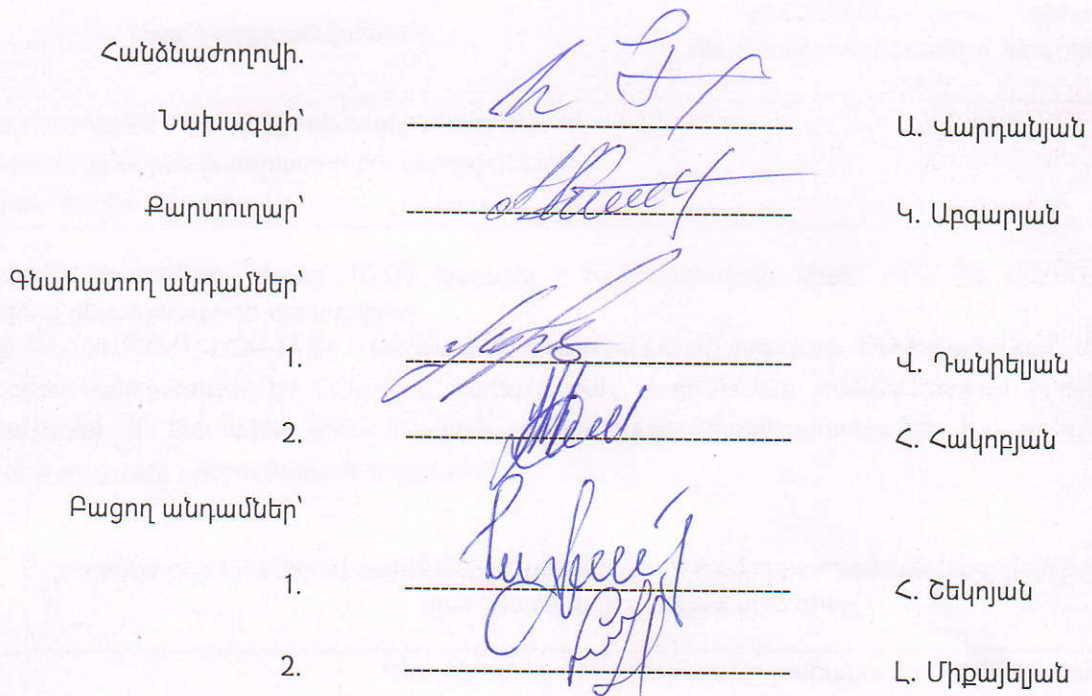 Հանձնաժողովի.
Նախագահ՝ Ա. Վարդանյան
Քարտուղար՝ Կ. Աբգարյան
Գնահատող անդամներ՝
1. Վ. Դանիելյան
2. Հ. Հակոբյան
Բացող անդամներ՝
1. Հ. Շեկոյան
2. Լ. Միքայելյան